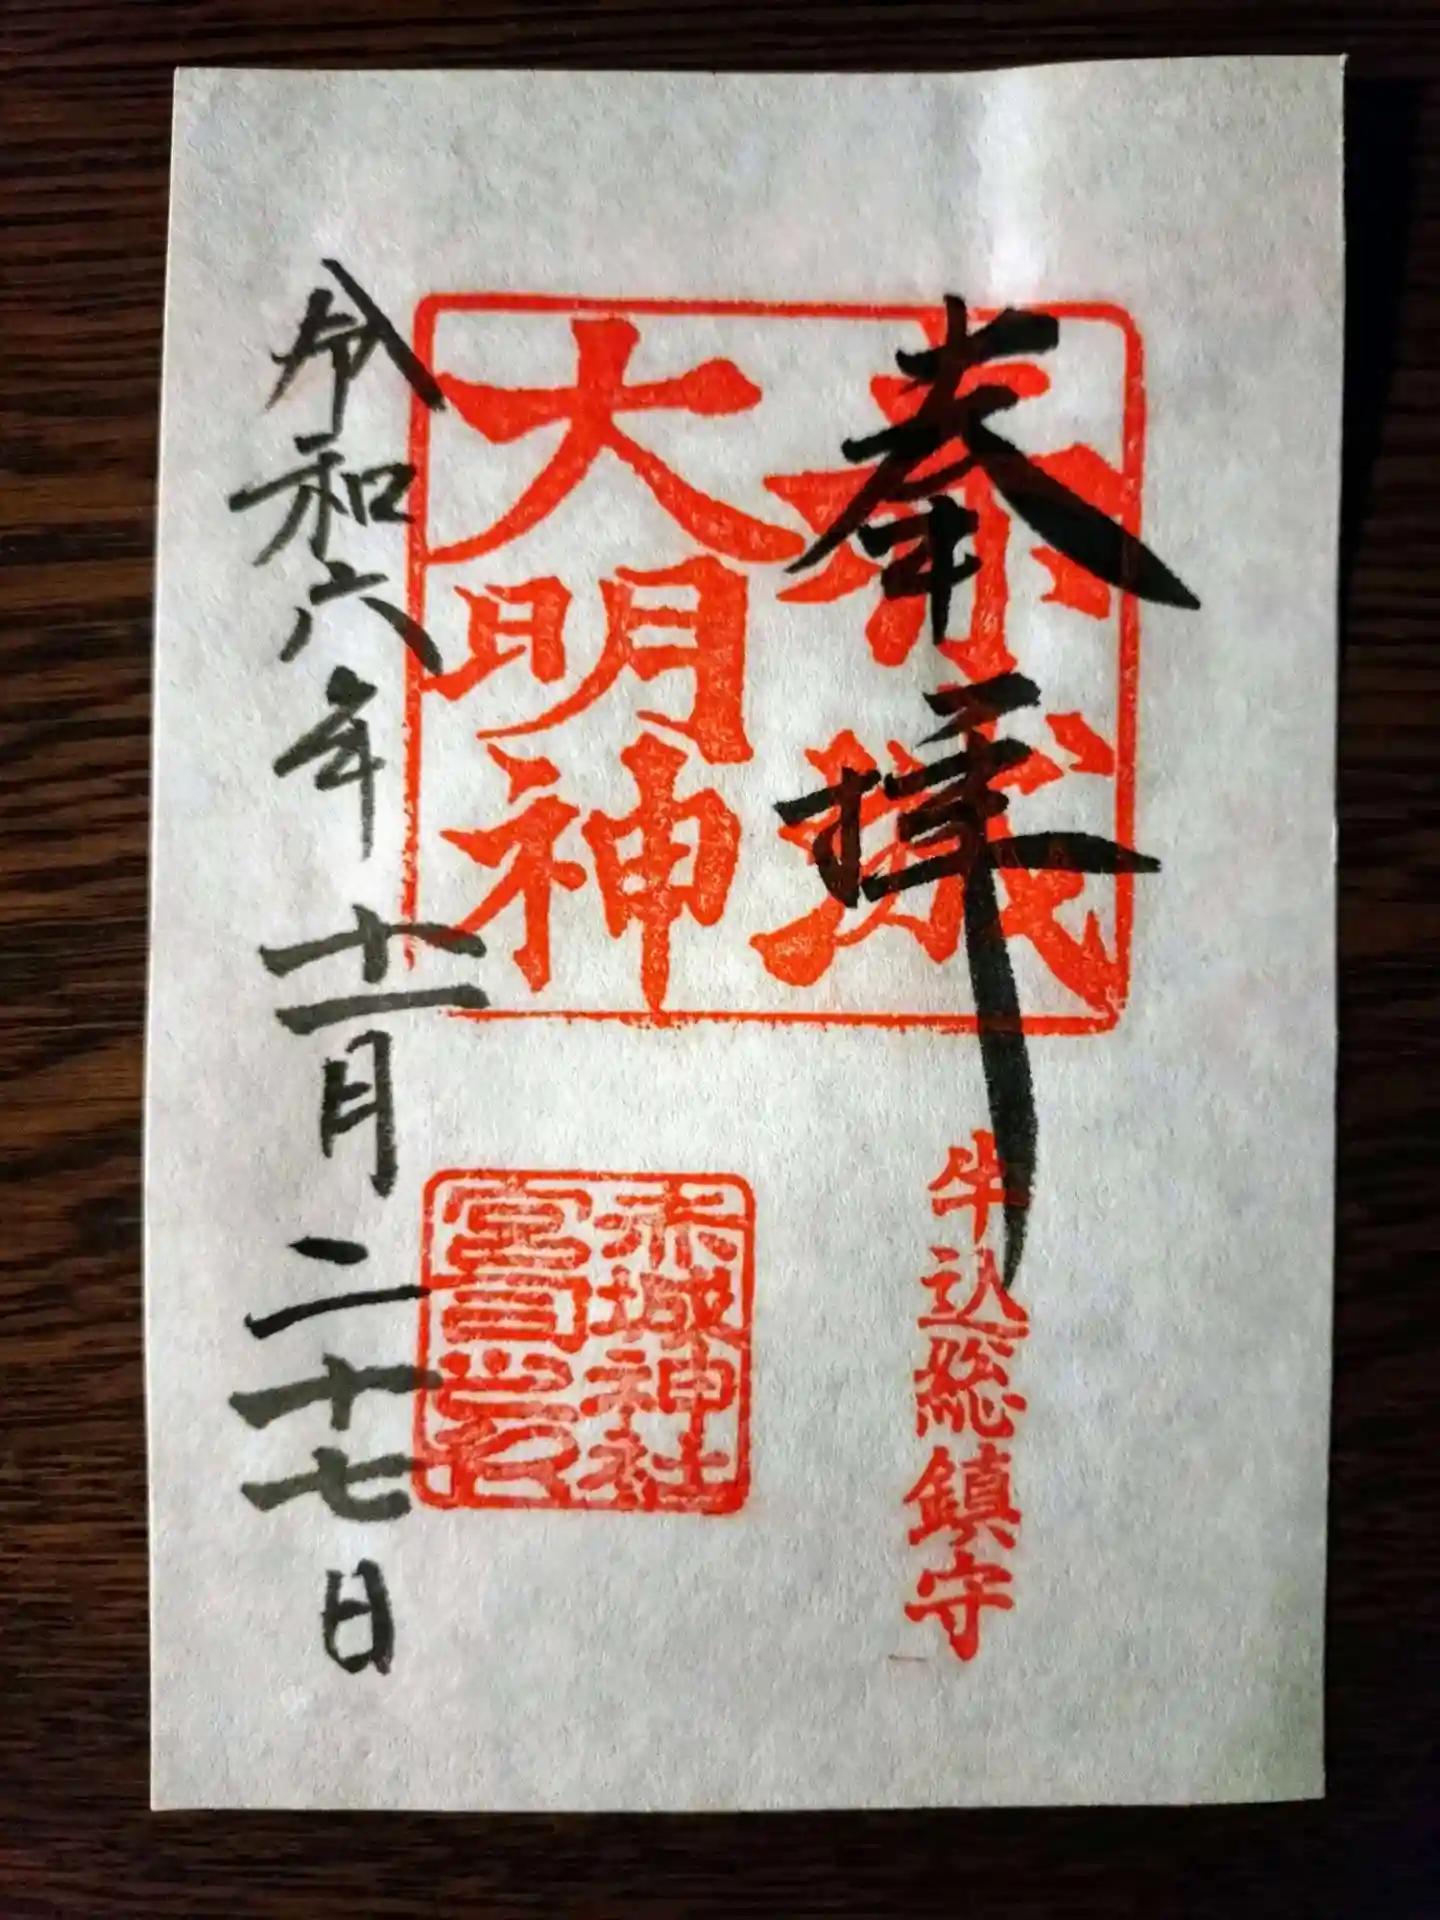 奉拝
赤城
大明神
牛込総鎮守
赤城神社
宮司之印
令和六年十一月二十七日